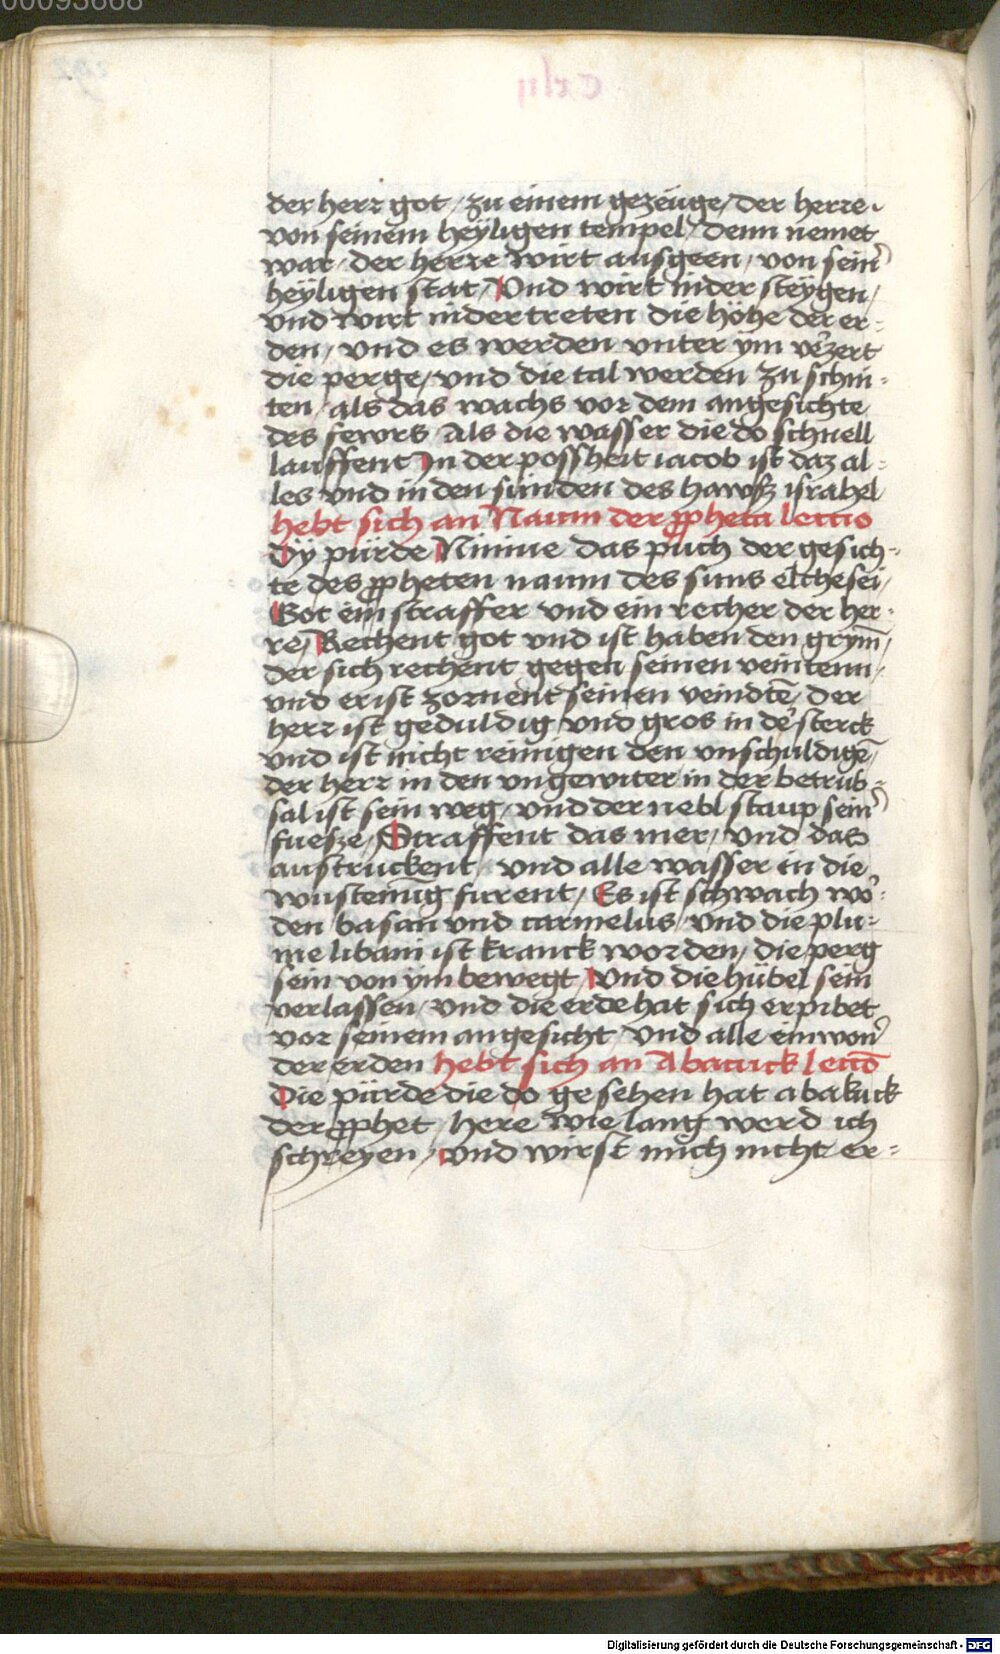 00093668
der herr got / zu einem gezeuge / der herre
von seinem heyligen tempel / denn nemet
war / der herre wirt ausgeen / von sein̄
heyligen stat / Und wirt nider steygen /
und wirt nidertreten die höhe der er-
den / und es werden unter ym v̄zert
die perge / und die tal werden zu schni-
ten / als das wachs vor dem angesichte
des fewrs / Als die wasser die do schnell
lauffent In der possheit iacob ist daz al-
les und in den sunden des hawsz israhel
hebt sich an Naum der ꝓpheta lectio
Dy pürde Ninive das puch der gesich-
te des ꝓpheten naum des suns elchesei /
Got ein straffer und ein recher der her-
re / Rechent got und ist haben den grym̄ /
der sich rechent gegen seinen veintenn /
und er ist zornent seinen veindtē / der
herr ist geduldig / und gros in der sterck
und ist nicht reinigen den unschuldigē /
der herr in den ungewiter in der betrub-
sal ist sein weg / und der nebl staup sein̄
fuesze / Straffent das mer / und das
austruckent / und alle wasser in die
wusteinūg furent / Es ist schwach wo-
den basan und carmelus / und die plu-
me libani ist kranck worden / die perg
sein von ym bewegt / Und die hübel sein
verlassen / und die erde hat sich erpibet
vor seinem angesicht / und alle einwon̄
der erden hebt sich an Abacuck lectō
Die pürde die do gesehen hat abakuck
der ꝓphet / here wie lang werd ich
schreyen / und wirst mich nicht er-
Digitalisierung gefördert durch die Deutsche Forschungsgemeinschaft - DFG